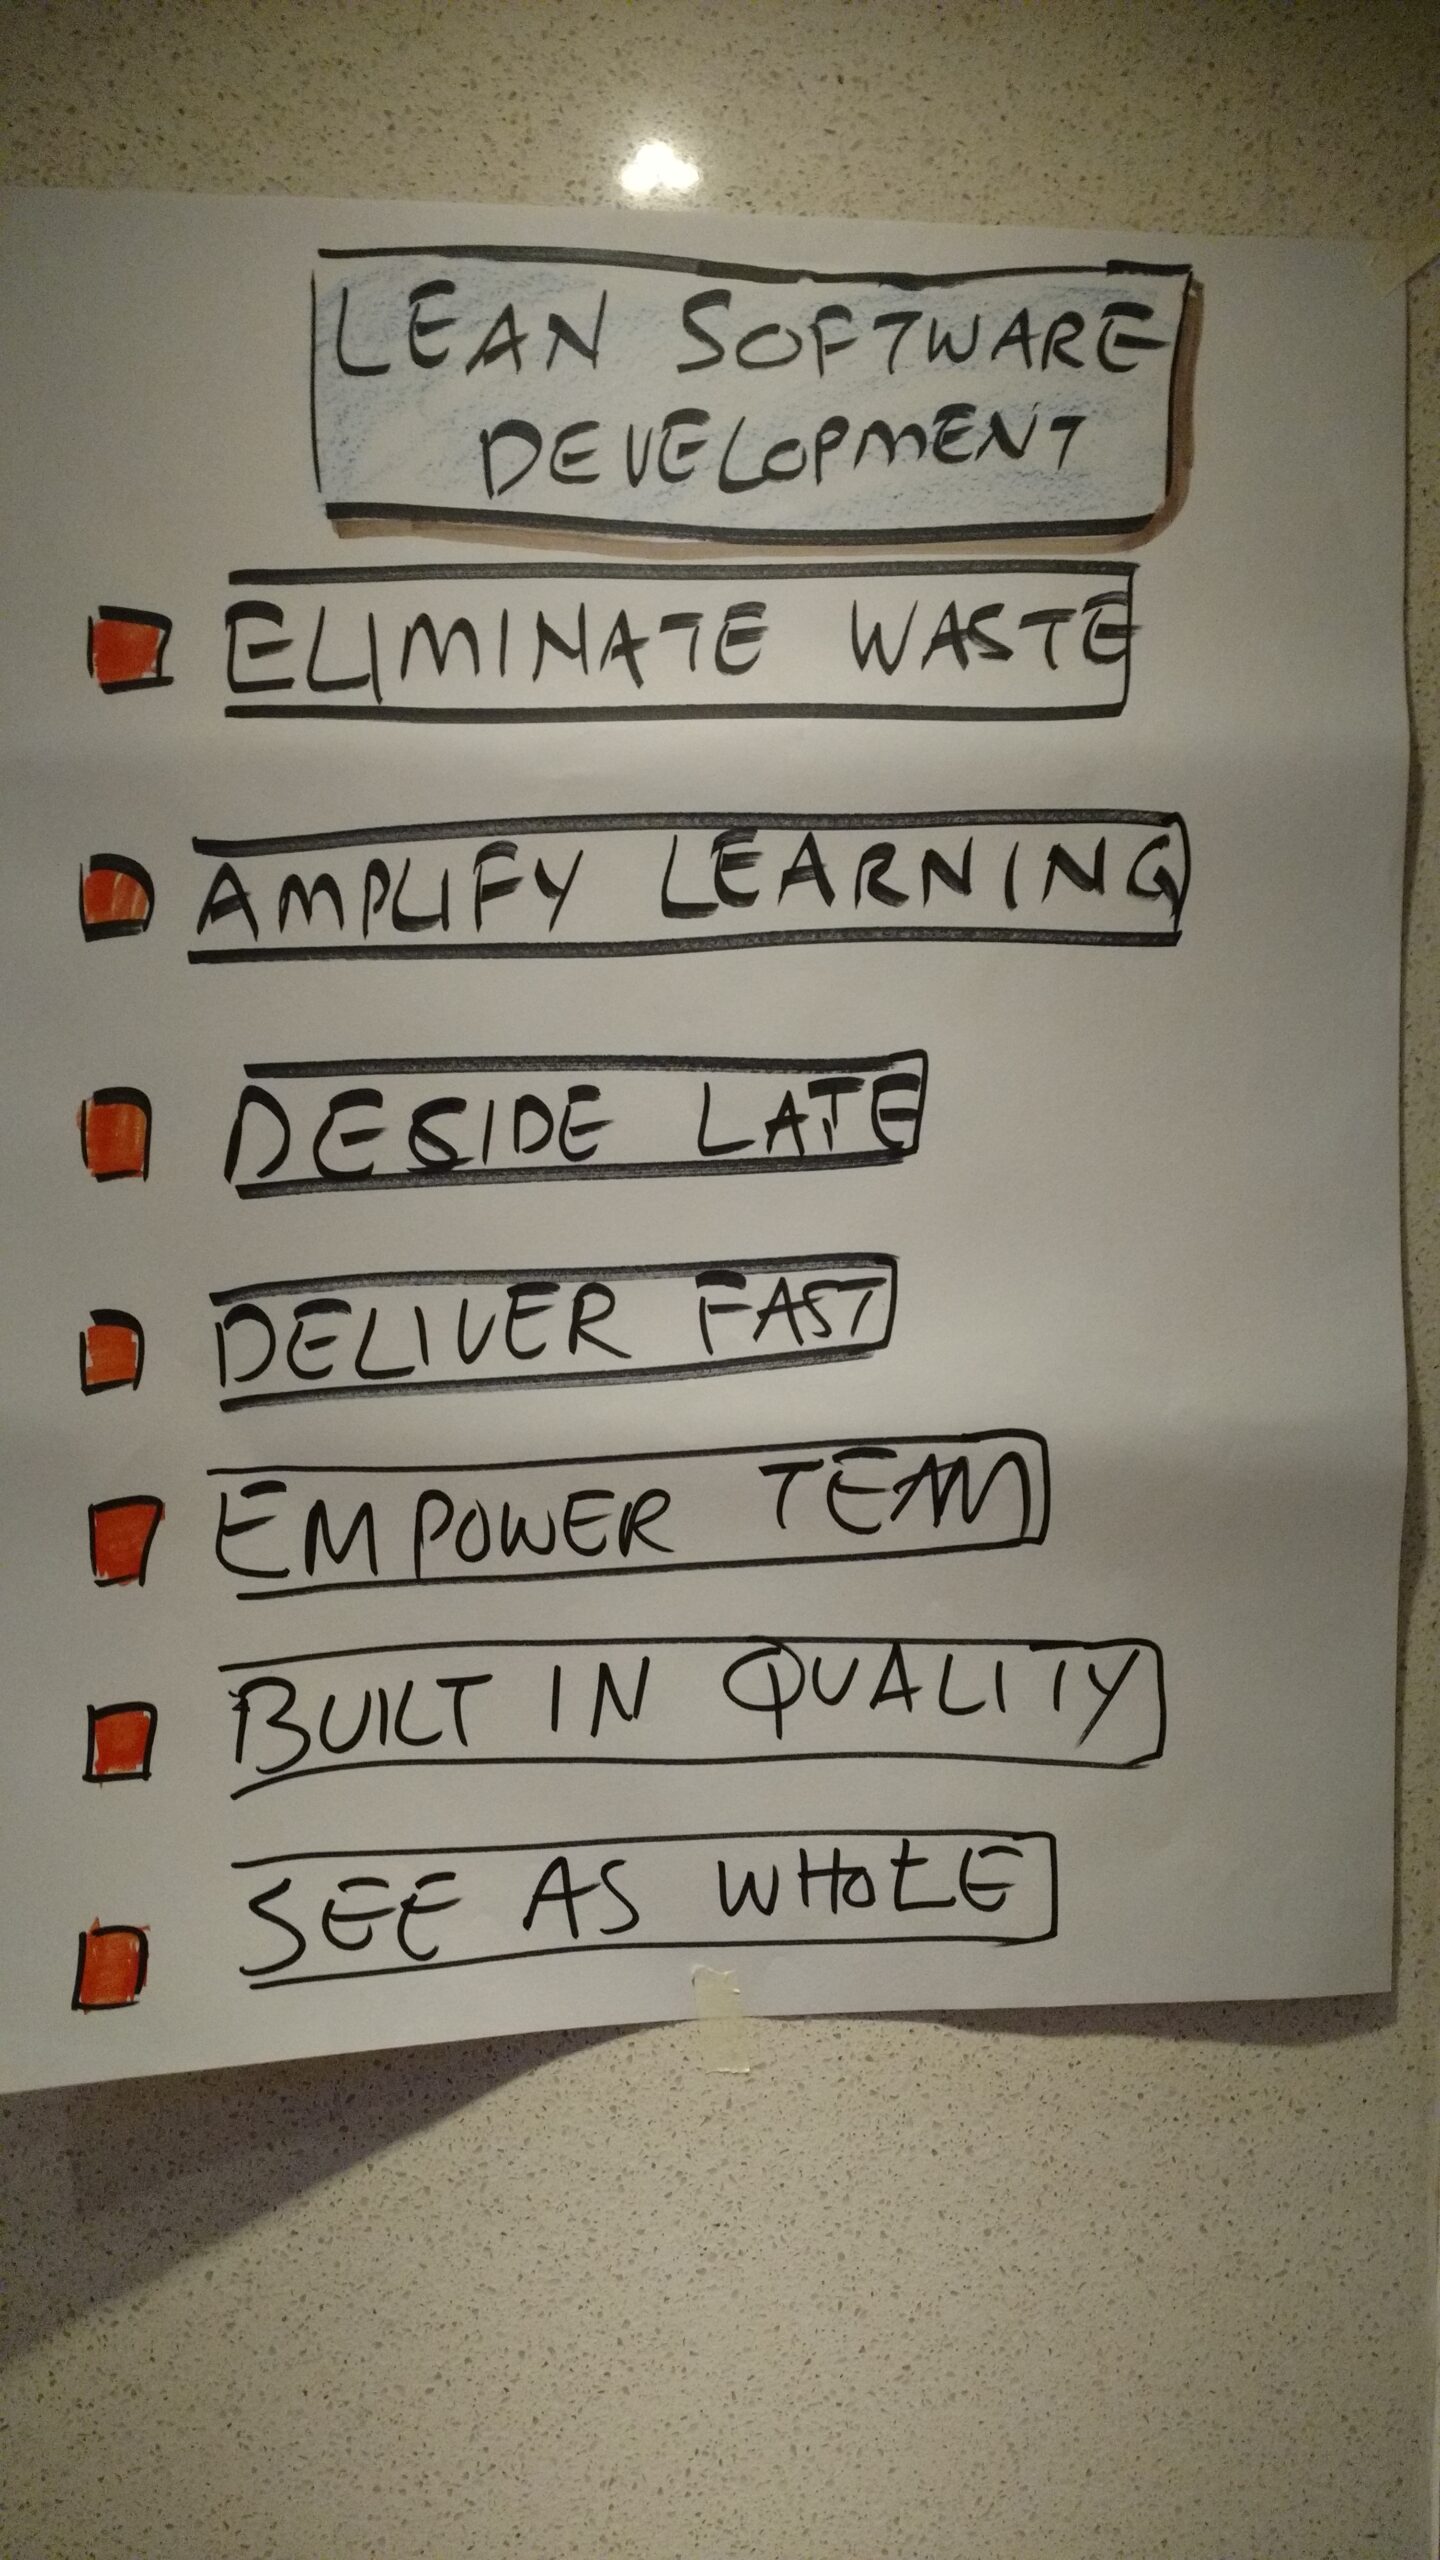 LEAN SOFTWARE
DEVELOPMENT
ELIMINATE WASTE
AMPLIFY LEARNING
DESIDE LATE
DELIVER FAST
EMPOWER TEAM
BUILT IN QUALITY
SEE AS WHOLE